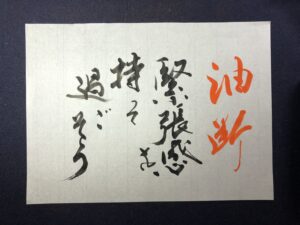 油断
緊張感を
持って
過ごそう